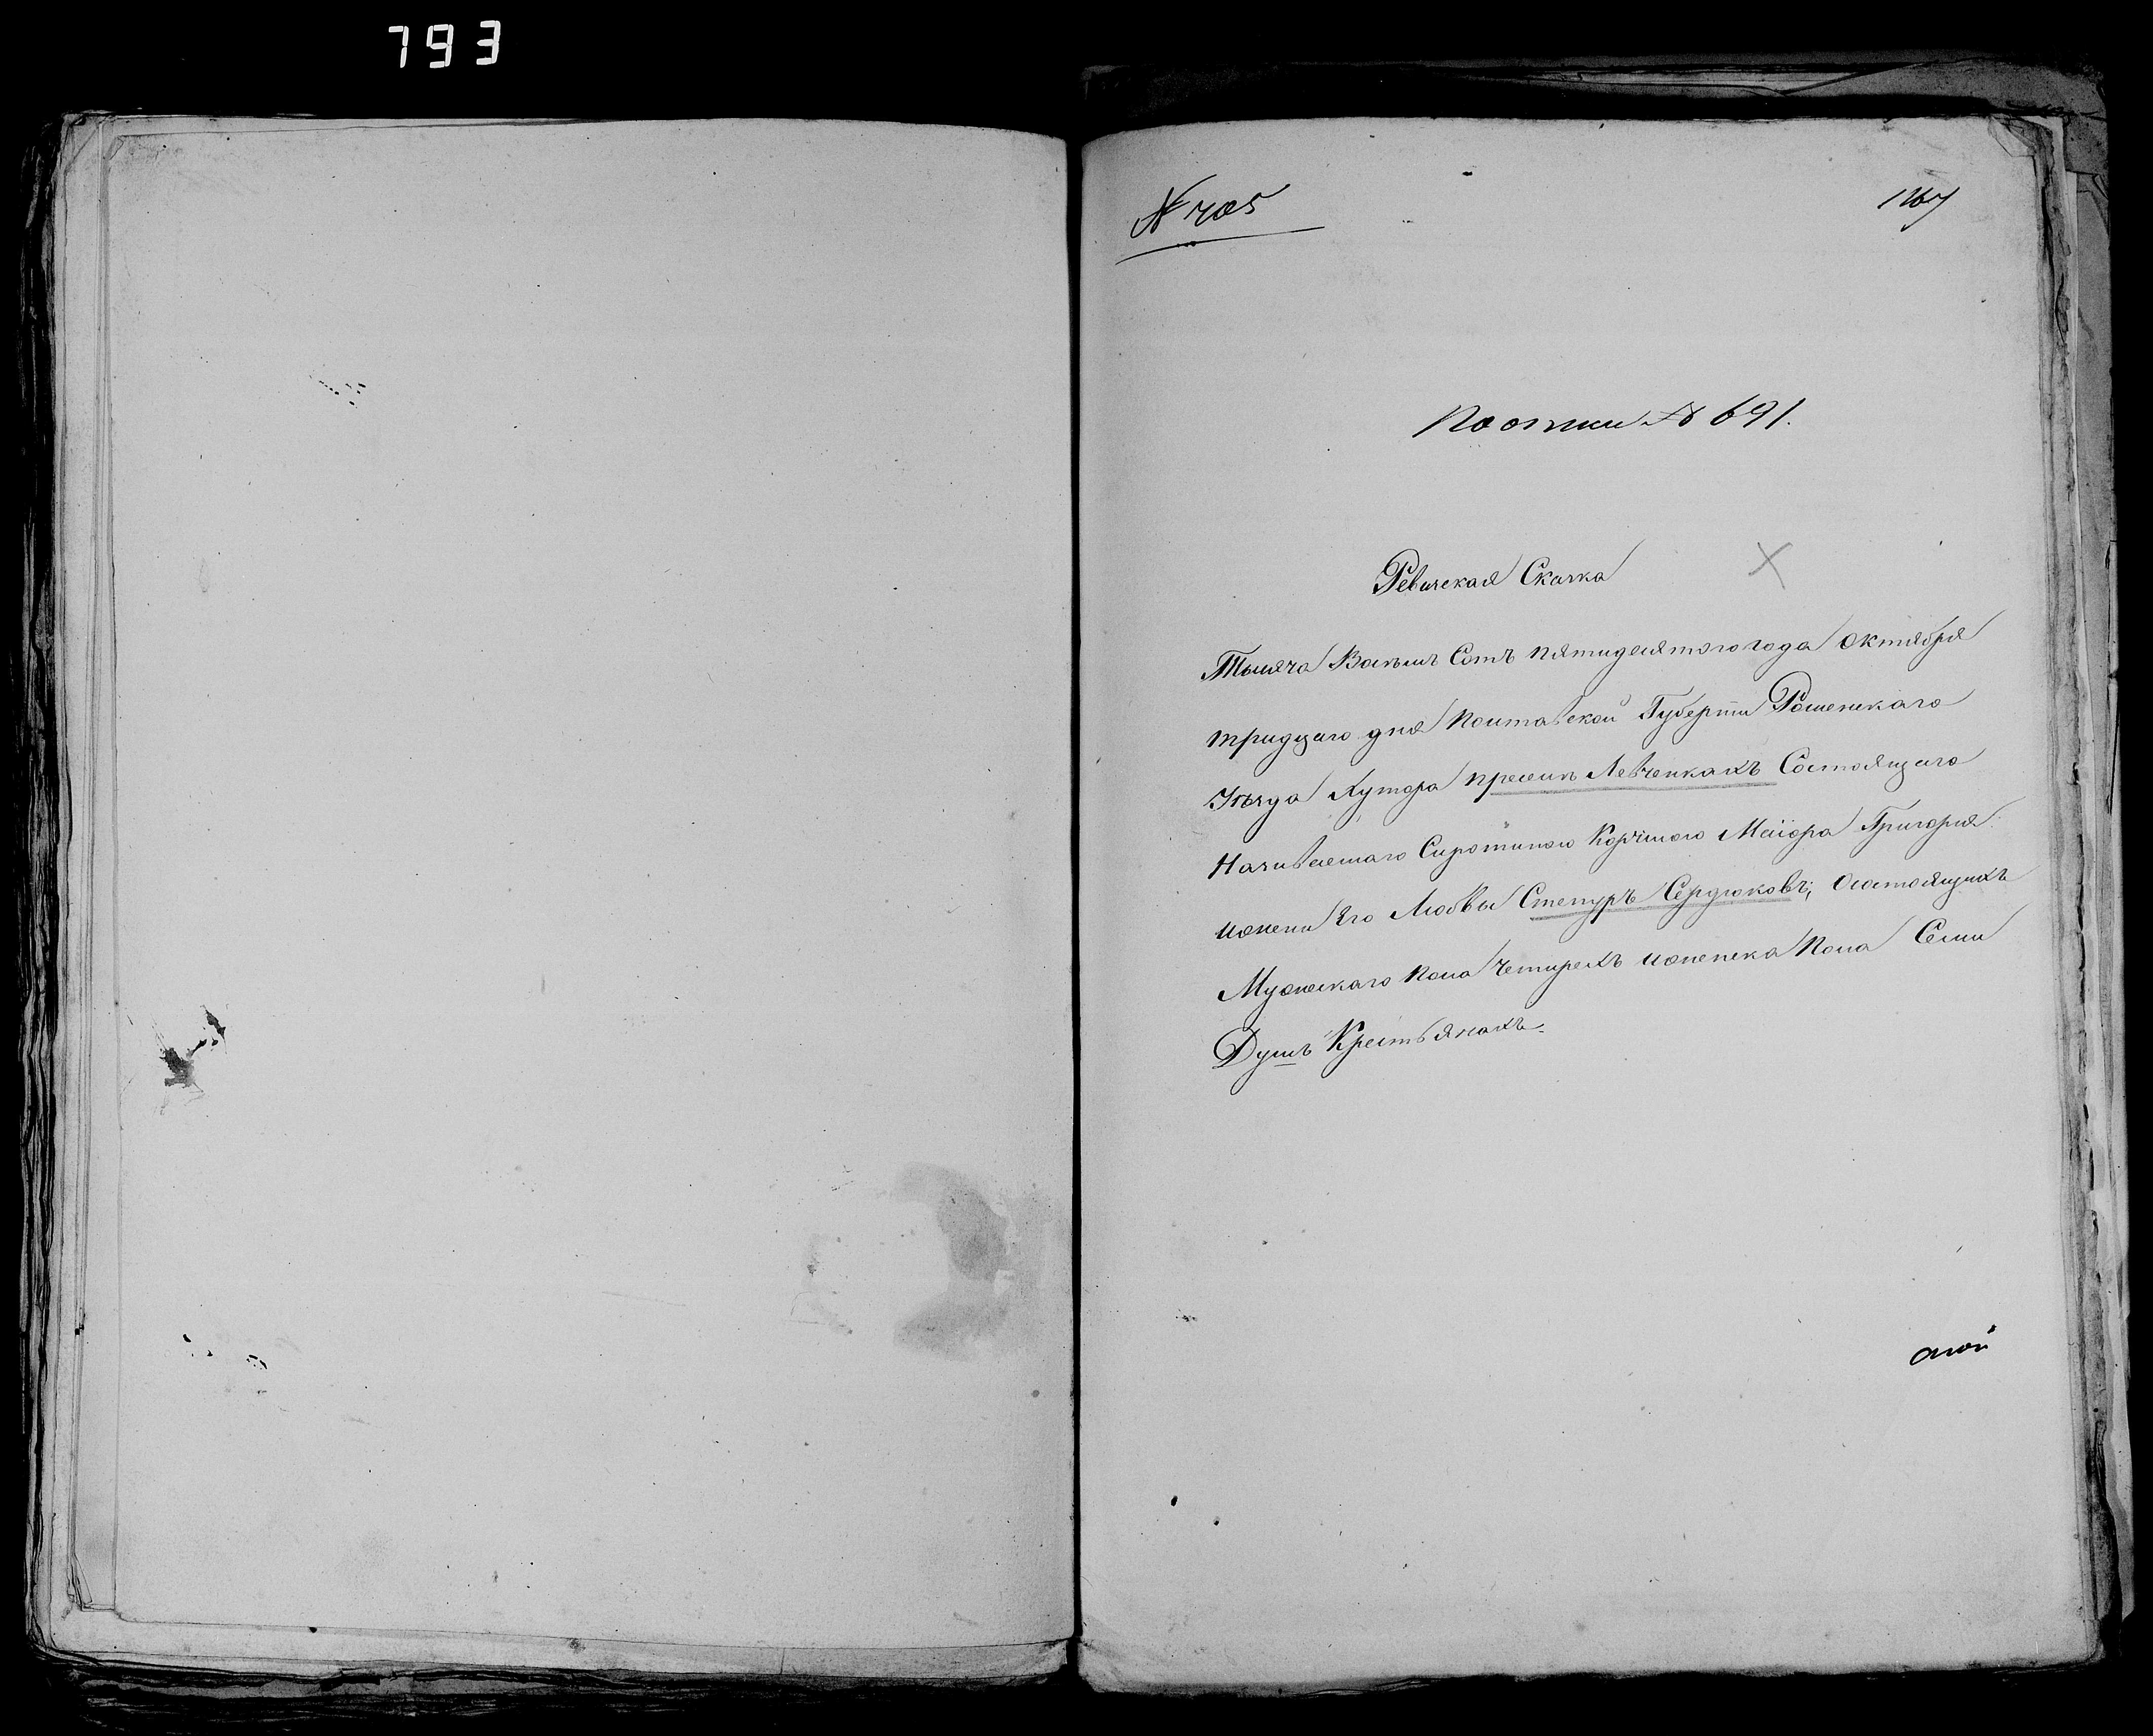 793
№ 705
1167
По описи № 691.
Ревизская Сказка
Тысяча Восемь Сотъ пятидесятого года Октября
тридцаго дня Полтавской Губерніи Роменскаго
Уезда Хутора при селе Левченкахъ Состоящаго
Называемаго Сиротиною Маіора Григория
и жены Его Любвы Сердюковъ, Состоящихъ
Мужескаго Пола Четирехъ и женска Пола Семи
Душъ Крестьянахъ.